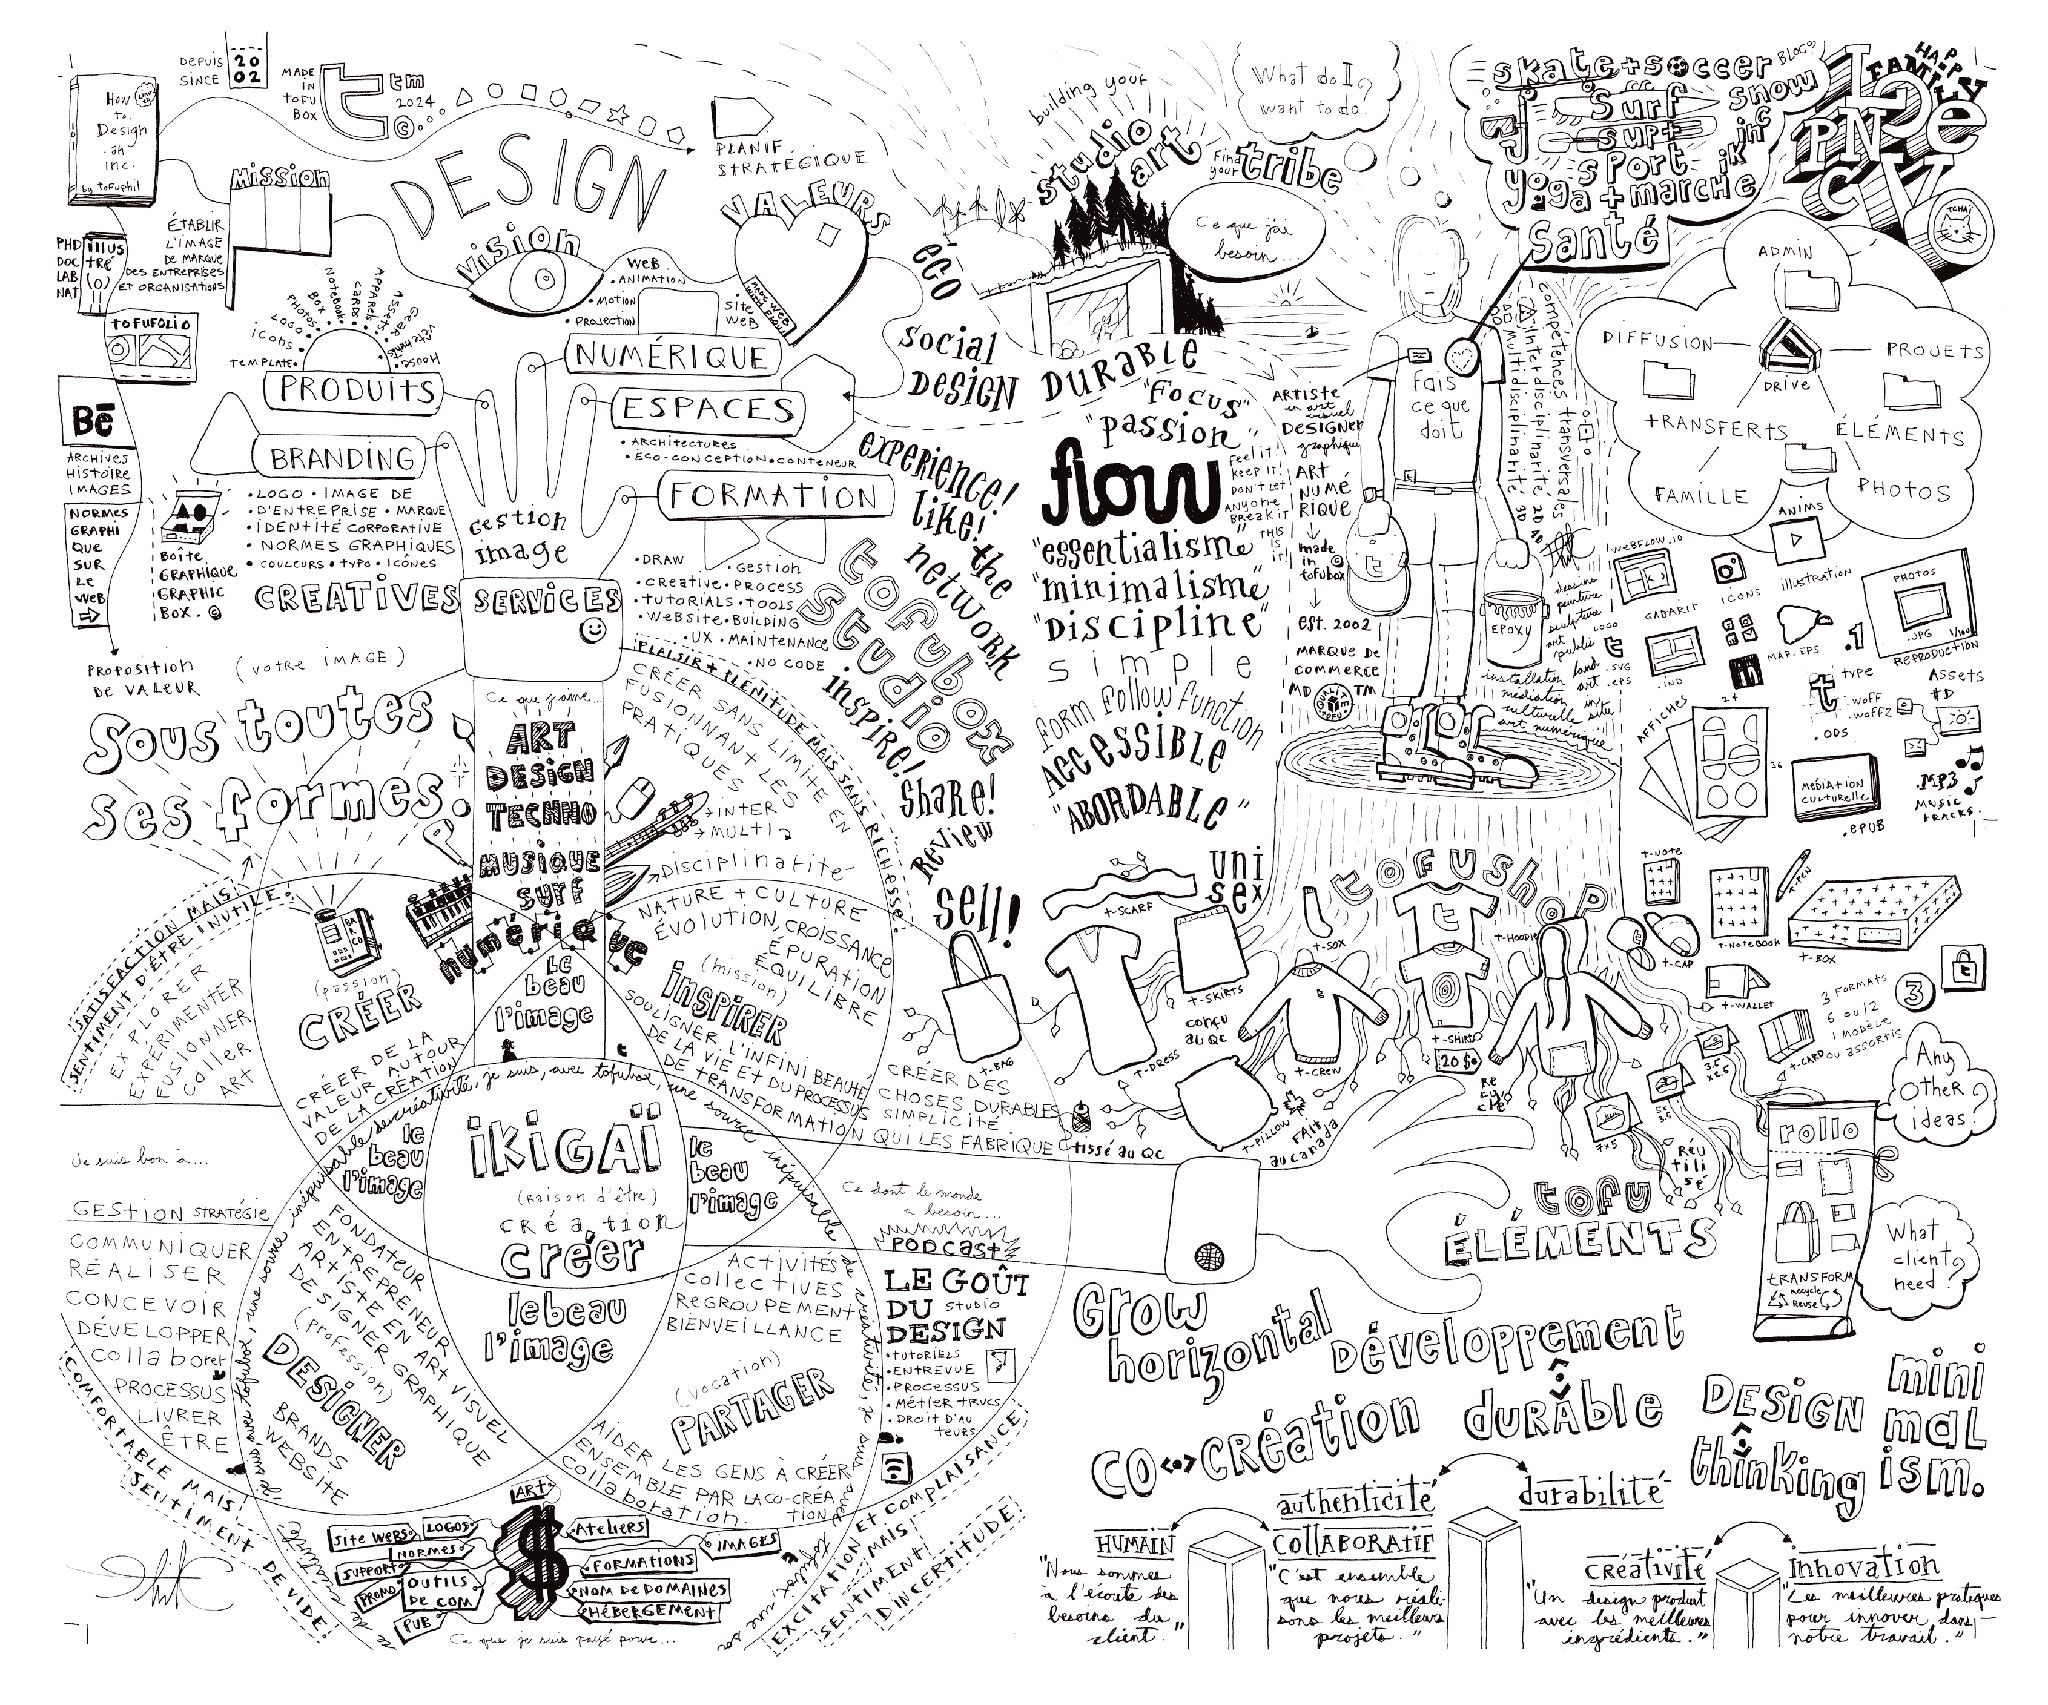 DEPUIS
SINCE
20
02
MADE
IN
TOFU
BOX
tm
2024
©
How
to
Design
an
inc.
by tofuphil
MISSION
ÉTABLIR
L'IMAGE
DE MARQUE
DES ENTREPRISES
ET ORGANISATIONS
PHD
DOC
LAB
NAT
illus
tré
TOFUFOLIO
DESIGN
PLANIF.
STRATÉGIQUE
VISION
VALEURS
WEB
• ANIMATION
• MOTION
• PROJECTION
SITE
WEB
TEMPLATE
icons
LOGO
PHOTOS
BOX
NOTEBOOK
CARDS
APPARELS
ASSETS
GEAR
HOUSE
PRODUITS
NUMÉRIQUE
ESPACES
• ARCHITECTURES
• ÉCO-CONCEPTION • CONTENEUR
BRANDING
• LOGO • IMAGE DE
• D'ENTREPRISE • MARQUE
• IDENTITÉ CORPORATIVE
• NORMES GRAPHIQUES
• COULEURS • TYPO • ICÔNES
CREATIVES
SERVICES
FORMATION
• DRAW
• GESTION
• CREATIVE • PROCESS
• TUTORIALS • TOOLS
• WEBSITE • BUILDING
• UX • MAINTENANCE
• NO CODE
Gestion
image
Bē
ARCHIVES
HISTOIRE
IMAGES
NORMES
GRAPHI
QUE
SUR
LE
WEB
BOÎTE
GRAPHIQUE
GRAPHIC
BOX. ©
PROPOSITION
DE VALEUR
(VOTRE IMAGE)
Sous toutes
ses formes.
eco
Social
DESIGN
experience!
like!
the
network
tofubox
studio
inspire!
share!
Review
sell!
building your
studio
art
Find
your
tribe
What do I
want to do?
Ce que j'ai
besoin...
DURABLE
"Focus"
"passion"
flow
Feel it!
keep it!
DON'T LET
ANYONE
BREAK IT
THIS
IS
IT!
"essentialisme"
"minimalisme"
"Discipline"
simple
form follow function
ACCESSIBLE
"ABORDABLE"
ARTISTE
en art
visuel
DESIGNER
graphique
ART
NUMÉ
RIQUE
made
in
tofubox
est. 2002
MARQUE DE
COMMERCE
MD
TM
Fais
ce que
doit
EPOXY
compétences transversales
Interdisciplinarité 2D
Multidisciplinarité 3D
4D
dessin
peinture
sculpture
art
public
land
art
installation
médiation
culturelle
art numérique
skate + soccer
BLOG?
Surf
snow
sup+
sport
yoga + marche
Santé
HAPPY
FAMILY
TCHAÏ
ADMIN
DIFFUSION
PROJETS
DRIVE
TRANSFERTS
ÉLÉMENTS
FAMILLE
PHOTOS
ANIMS
WEBFLOW.IO
ICONS
illustration
PHOTOS
.JPG
1/100
REPRODUCTION
GABARIT
.IND
LOGO
.SVG
.EPS
MAP.EPS
.1
type
.woff
.woff2
.ODS
Assets
#D
AFFICHES
24
36
MÉDIATION
CULTURELLE
.EPUB
.MP3
MUSIC
TRACKS.
PLAISIR + PLÉNITUDE MAIS SANS RICHESSE.
CRÉER SANS LIMITE EN
FUSIONNANT LES
PRATIQUES
Ce que j'aime...
ART
DESIGN
TECHNO
MUSIQUE
SURF
numérique
INTER
MULTI
Disciplinarité
NATURE + CULTURE
ÉVOLUTION, CROISSANCE
ÉPURATION
ÉQUILIBRE
(mission)
INSPIRER
SOULIGNER L'INFINI BEAUTÉ
DE LA VIE ET DU PROCESSUS
DE TRANSFORMATION QUI LES FABRIQUE
CRÉER DES
CHOSES DURABLES
SIMPLICITÉ
SATISFACTION MAIS
SENTIMENT D'ÊTRE INUTILE.
EXPLORER
EXPÉRIMENTER
FUSIONNER
COLLER
ART
(passion)
CRÉER
CRÉER DE LA
VALEUR AUTOUR
DE LA CRÉATION
Le
beau
l'image
inépuisable de créativité, je suis, avec tofubox, une source inépuisable
IKIGAÏ
(Raison d'être)
création
créer
le
beau
l'image
le
beau
l'image
le beau
l'image
Je suis bon à...
GESTION STRATÉGIE
COMMUNIQUER
RÉALISER
CONCEVOIR
DÉVELOPPER
Collaborer
PROCESSUS
LIVRER
ÊTRE
FONDATEUR
ENTREPRENEUR
ARTISTE EN ART VISUEL
DESIGNER GRAPHIQUE
(profession)
DESIGNER
BRANDS
WEBSITE
CONFORTABLE MAIS!
SENTIMENT DE VIDE!
Ce dont le monde
a besoin...
PODCAST
LE GOÛT
DU STUDIO
DESIGN
• TUTORIELS
• ENTREVUE
• PROCESSUS
• MÉTIER • TRUCS
• DROIT D'AU
TEURS
ACTIVITÉS
Collectives
REGROUPEMENT
BIENVEILLANCE
(vocation)
PARTAGER
AIDER LES GENS À CRÉER
ENSEMBLE PAR LA CO-CRÉA
TION
Collaboration.
EXCITATION ET COMPLAISANCE
MAIS
SENTIMENT
D'INCERTITUDE!
ART
$
SITE WEBS
LOGOS
NORMES
SUPPORT
PROMO
OUTILS
DE COM
PUB
ATELIERS
IMAGES
FORMATIONS
NOM DE DOMAINES
HÉBERGEMENT
Ce que je suis payé pour...
UNI
SEX
TOFUSHOP
T-SCARF
T-SKIRTS
T-SOX
T-HOODIE
T-CAP
T-NOTE
T-NOTEBOOK
T-PEN
T-BOX
T-WALLET
T-CARD
T-BAG
T-DRESS
T-CREW
T-SHIRT
20$
T-PILLOW
conçu
au Qc
tissé au Qc
FAIT
au canada
3 FORMATS
3
6 ou 12
1 modèle
ou assortis
Any
Other
ideas?
rollo
RÉU
TILI
SÉ
TRANSFORM
Recycle
Reuse
What
client
need?
tofu
ÉLÉMENTS
Grow
horizontal
Développement
durable
CO<•>CRÉATION
DESIGN
thinking
mini
mal
ism.
HUMAIN
"Nous sommes
à l'écoute des
besoins du
client."
authenticité
Collaboratif
"C'est ensemble
que nous réali-
sons les meilleurs
projets."
durabilité
créativité
"Un design produit
avec les meilleures
ingrédients."
innovation
"Les meilleures pratiques
pour innover dans
notre travail."